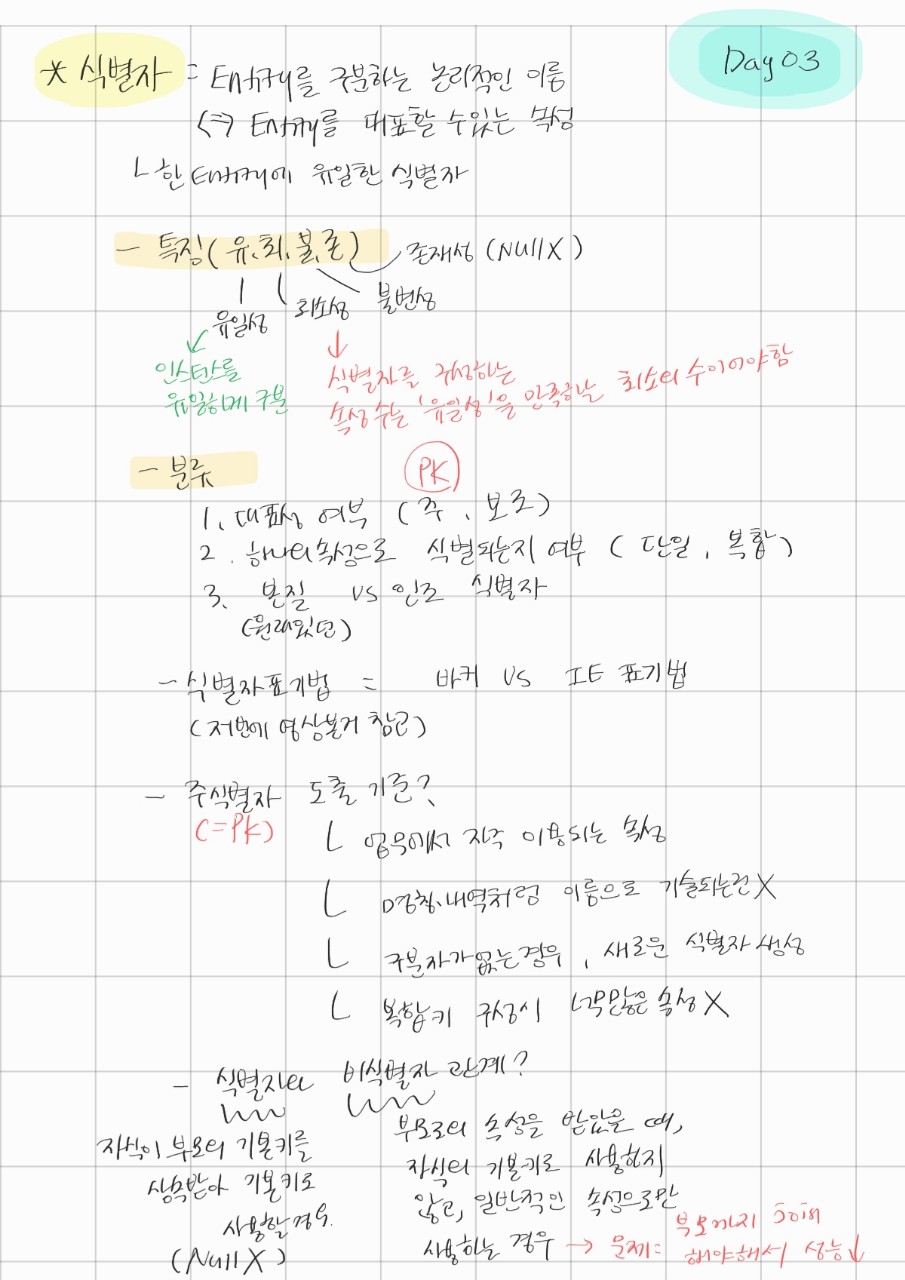 Day 03
* 식별자 = Entity를 구분하는 논리적인 이름
<=> Entity를 대표할 수 있는 속성
ㄴ 한 Entity에 유일한 식별자
- 특징(유,최,불,존) 존재성 (Null X)
유일성 최소성 불변성
인스턴스를
유일하게 구분
식별자를 구성하는
속성 수는 '유일성'을 만족하는 최소의 수이어야 함
- 분류
PK
1. 대표성 여부 (주, 보조)
2. 하나의 속성으로 식별되는지 여부 (단일, 복합)
3. 본질 vs 인조 식별자
(원래있던)
- 식별자표기법 = 바커 vs IE 표기법
(저번에 영상본거 참고)
- 주식별자 도출 기준?
(=PK)
ㄴ 업무에서 자주 이용되는 속성
ㄴ 명칭, 내역처럼 이름으로 기술되는건 X
ㄴ 구분자가 없는경우, 새로운 식별자 생성
ㄴ 복합키 구성시 너무많은 속성 X
- 식별자와 비식별자 관계?
자식이 부모의 기본키를
상속받아 기본키로
사용할 경우.
(Null X)
부모로의 속성을 받았을 때,
자식의 기본키로 사용하지
않고, 일반적인 속성으로만
사용하는 경우 → 문제: 부모까지 Join
해야해서 성능↓